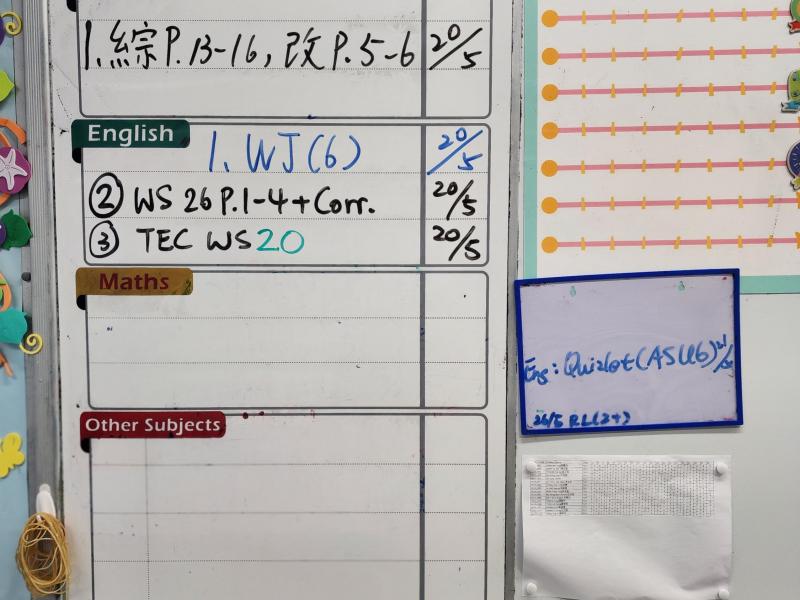 1. 綜 P. 13-16, 改 P. 5-6 20/5
English
1. WJ(6) 20/5
② WS 26 P.1-4 + Corr. 20/5
③ TEC WS 20 20/5
Maths
Other Subjects
Eng: Quizlet (ASU6)
26/5 RL(2+)